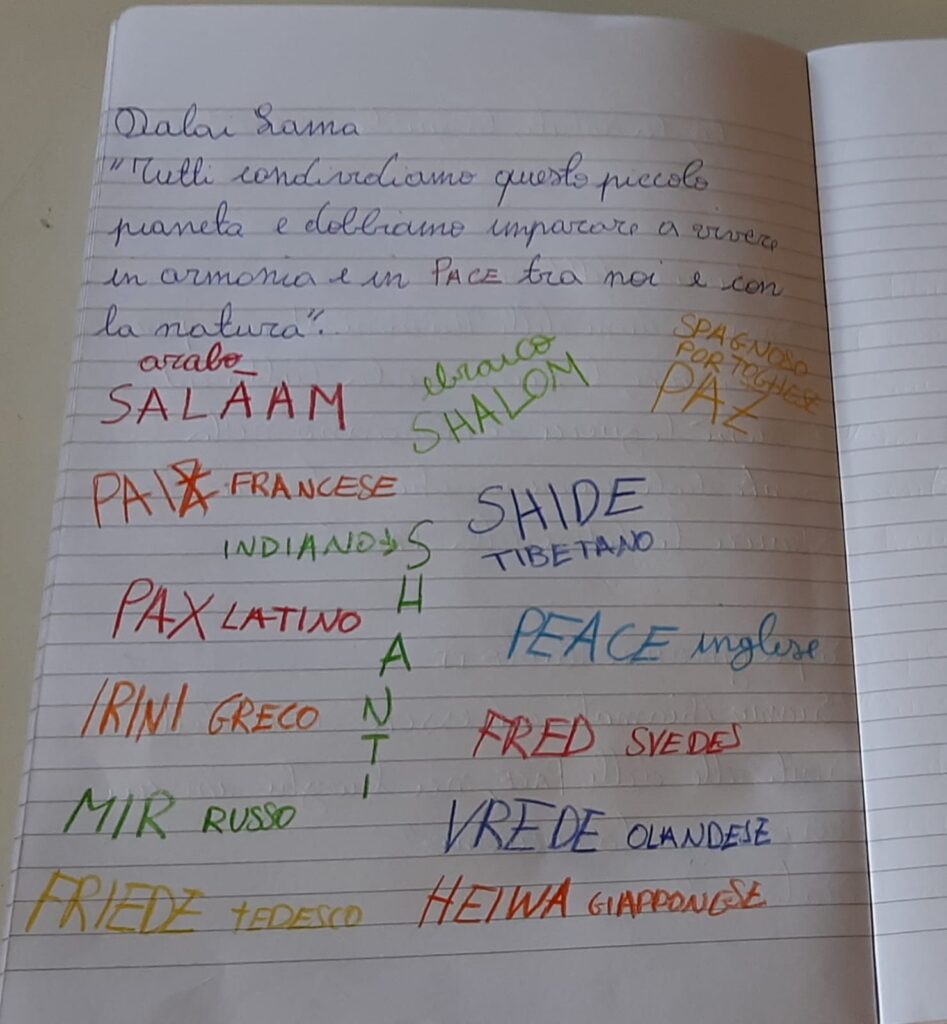 Dalai Lama
"Tutti condividiamo questo piccolo
pianeta e dobbiamo imparare a vivere
in armonia e in PACE tra noi e con
la natura".
arabo
SALAAM
ebraico
SHALOM
SPAGNOLO
PORTOGHESE
PAZ
PAIX FRANCESE
SHIDE
TIBETANO
INDIANO→ SHANTI
PAX LATINO
PEACE inglese
IRINI GRECO
FRED SVEDES
MIR RUSSO
VREDE OLANDESE
FRIEDE TEDESCO
HEIWA GIAPPONESE